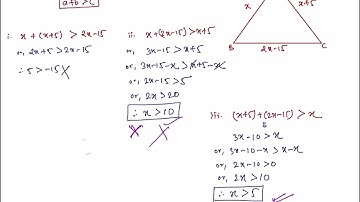 a+b>c
i. x+(x+5) > 2x-15
or, 2x+5>2x-15
∴ 5>-15
ii. x+(2x-15)>x+5
or, 3x-15>x+5
or, 3x-15-x>x+5-x
or, 2x-15>5
or, 2x>20
∴ x>10
x
x+5
B
2x-15
C
iii. (x+5)+(2x-15)>x
3x-10>x
or, 3x-10-x>x-x
or, 2x-10>0
or, 2x>10
∴ x>5